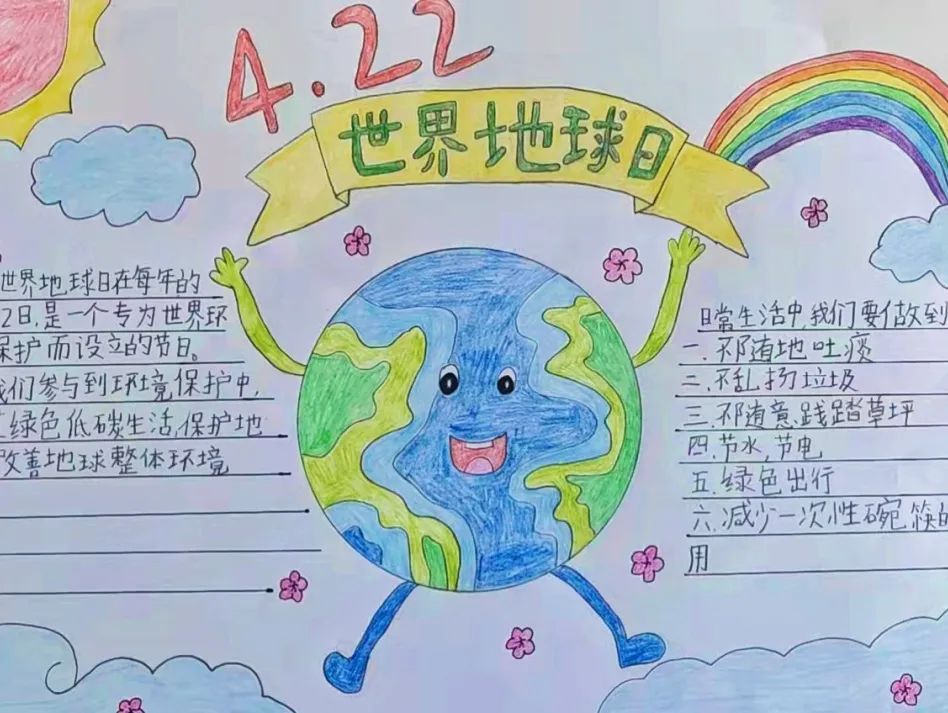 4.22
世界地球日
世界地球日在每年的
2日,是一个专为世界环
保护而设立的节日。
我们参与到环境保护中,
绿色低碳生活,保护地
改善地球整体环境
日常生活中,我们要做到
一.不随地吐痰
二.不乱扔垃圾
三.不随意践踏草坪
四.节水,节电
五.绿色出行
六.减少一次性碗筷的
用